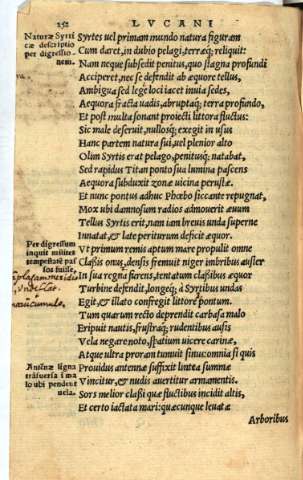 252 LVCANI
Naturæ Syrti
cæ descriptio
per digressio
nem.
Syrtes uel primam mundo natura figuram
Cum daret, in dubio pelagi, terræq; reliquit:
Nam neque subsedit penitus, quo stagna profundi
Acciperet, nec se defendit ab æquore tellus,
Ambigua sed lege loci iacet inuia sedes,
Aequora fracta uadis, abruptaq; terra profundo,
Et post multa sonant proiecti littora fluctus:
Sic male deseruit, nullosq; exegit in usus
Hanc partem natura sui, uel plenior alto
Olim Syrtis erat pelago, penitusq; natabat,
Sed rapidus Titan ponto sua lumina pascens
Aequora subduxit zonæ uicina perustæ.
Et nunc pontus adhuc Phœbo siccante repugnat,
Mox ubi damnosum radios admouerit æuum
Tellus Syrtis erit, nam iam breuis unda superne
Innatat, & late periturum deficit æquor.
Per digressum
inquit milites
tempestate pas
sos fuisse.
Vt primum remis aptum mare propulit omne
Classis onus, densis fremuit niger imbribus auster
In sua regna furens, tentatum classibus æquor
Turbine defendit, longeq; à Syrtibus undas
Egit, & illato confregit littore pontum.
Tum quarum recto deprendit carbasa malo
Eripuit nautis, frustraq; rudentibus ausis
Vela negare noto, spatium uicere carinæ,
Atque ultra proram tumuit sinus: omnia si quis
Antennæ signa
trãsuersa ĩ ma
lo ubi pendent
uela.
Prouidus antennæ suffixit lintea summæ
Vincitur, & nudis auertitur armamentis.
Sors melior classi quæ fluctibus incidit altis,
Et certo iactata mari: quæcunque leuatæ
Arboribus